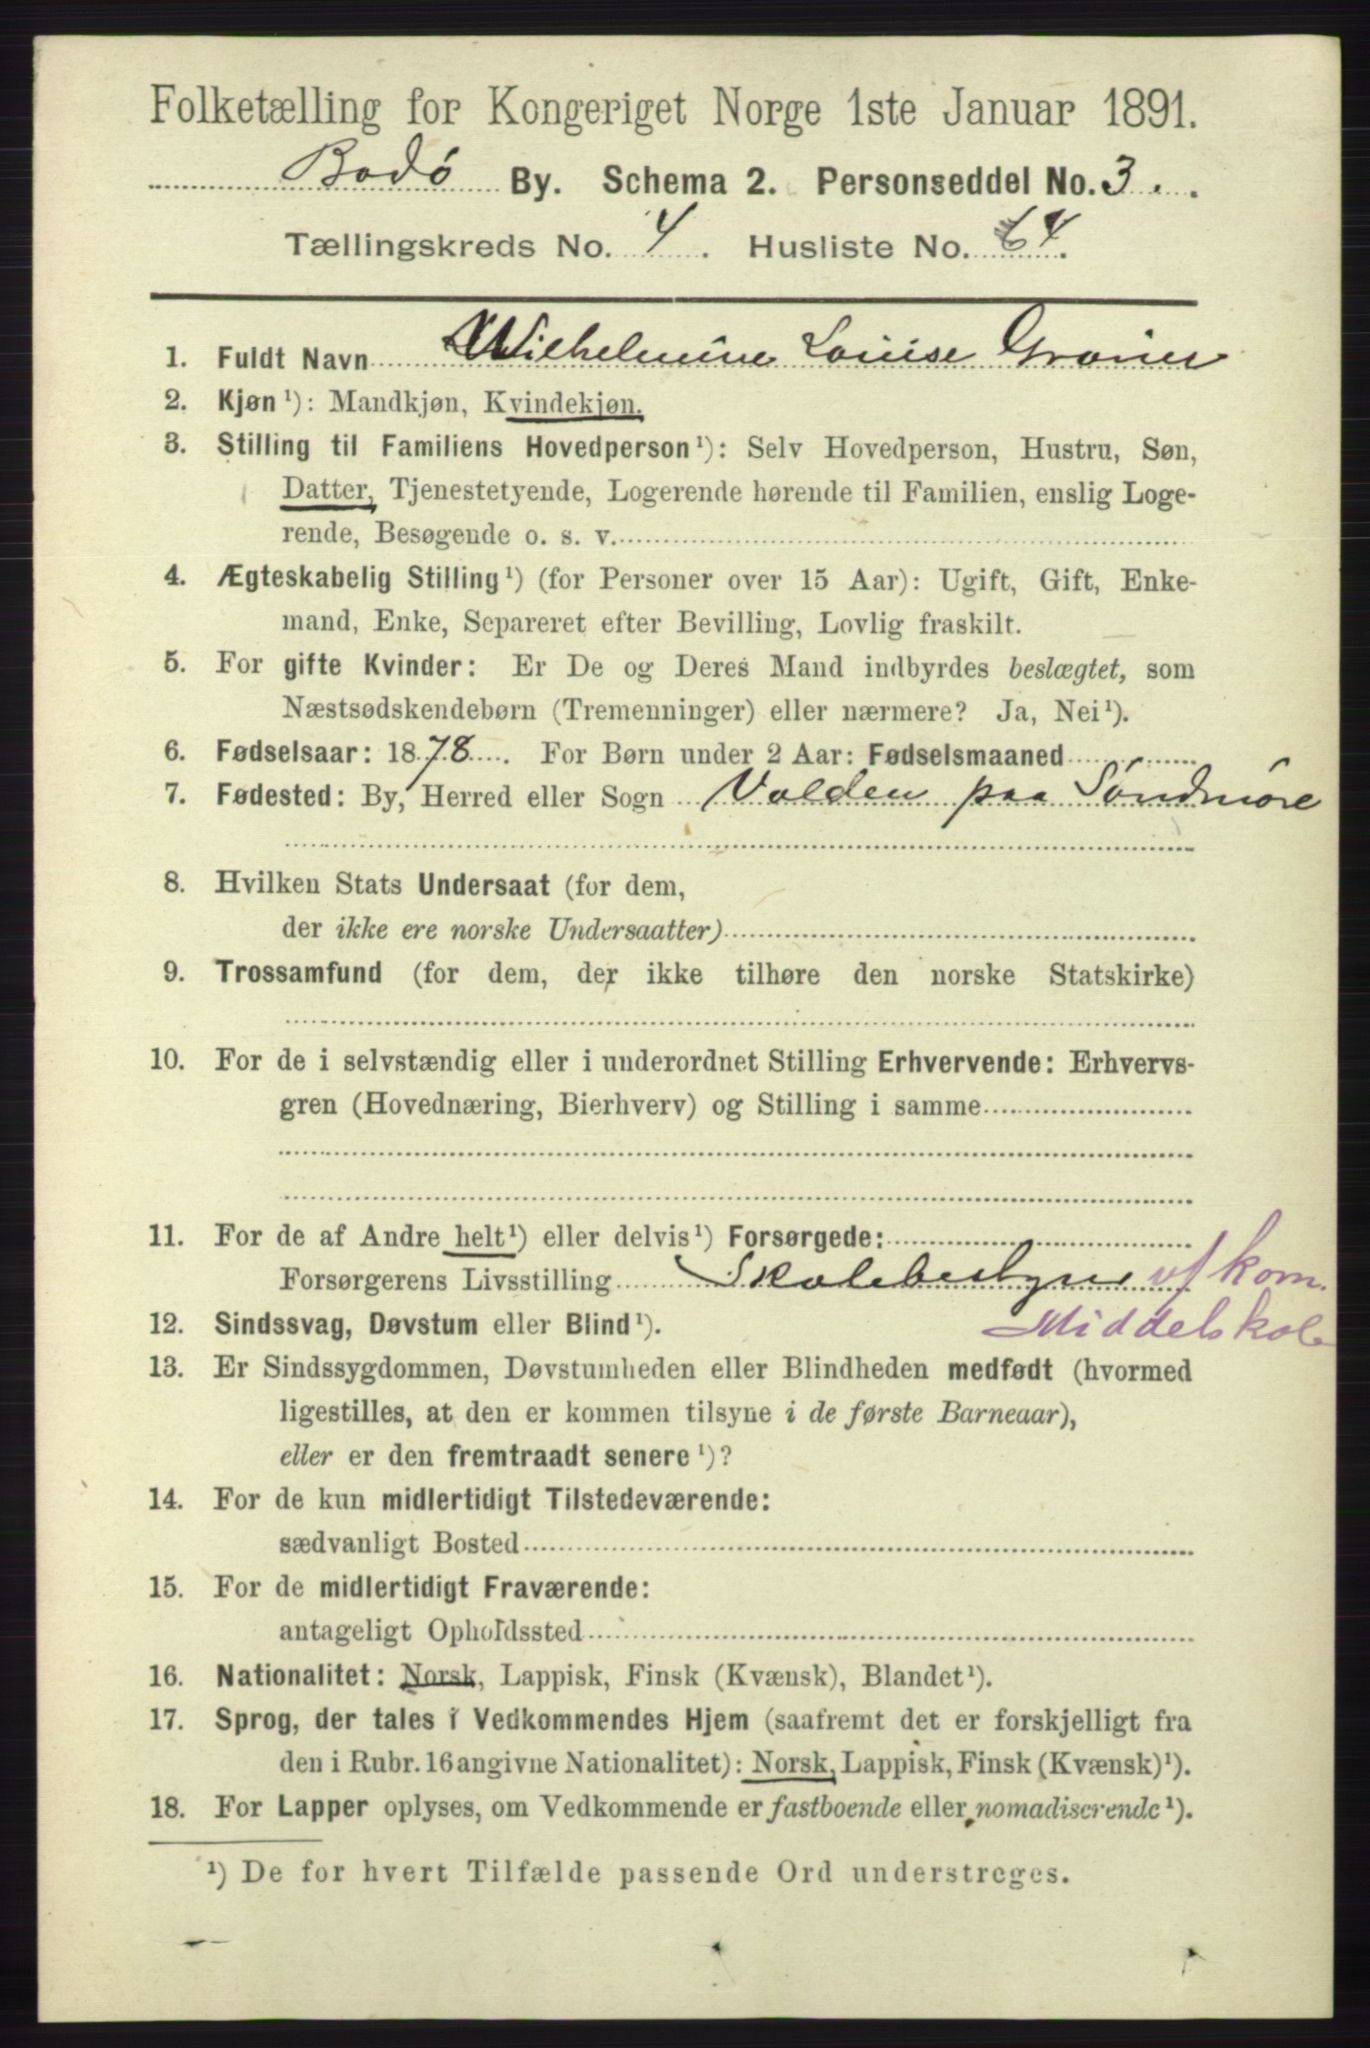 Folketælling for Kongeriget Norge 1ste Januar 1891.
Bodø By. Schema 2. Personseddel No. 3.
Tællingskreds No. 4. Husliste No. 64.
1. Fuldt Navn Wilhelmine Louise
2. Kjøn¹): Mandkjøn, Kvindekjøn.
3. Stilling til Familiens Hovedperson¹): Selv Hovedperson, Hustru, Søn,
Datter, Tjenestetyende, Logerende hørende til Familien, enslig Loge-
rende, Besøgende o. s. v.
4. Ægteskabelig Stilling¹) (for Personer over 15 Aar): Ugift, Gift, Enke-
mand, Enke, Separeret efter Bevilling, Lovlig fraskilt.
5. For gifte Kvinder: Er De og Deres Mand indbyrdes beslægtet, som
Næstsødskendebørn (Tremenninger) eller nærmere? Ja, Nei¹).
6. Fødselsaar: 1878. For Børn under 2 Aar: Fødselsmaaned
7. Fødested: By, Herred eller Sogn Volden paa Søndmøre
8. Hvilken Stats Undersaat (for dem,
der ikke ere norske Undersaatter)
9. Trossamfund (for dem, der ikke tilhøre den norske Statskirke)
10. For de i selvstændig eller i underordnet Stilling Erhvervende: Erhvervs-
gren (Hovednæring, Bierhverv) og Stilling i samme
11. For de af Andre helt¹) eller delvis¹) Forsørgede:
Forsørgerens Livsstilling Skolebestyrer v/ kom.
Middelskole
12. Sindssvag, Døvstum eller Blind¹).
13. Er Sindssygdommen, Døvstumheden eller Blindheden medfødt (hvormed
ligestilles, at den er kommen tilsyne i de første Barneaar),
eller er den fremtraadt senere¹)?
14. For de kun midlertidigt Tilstedeværende:
sædvanligt Bosted
15. For de midlertidigt Fraværende:
antageligt Opholdssted
16. Nationalitet: Norsk, Lappisk, Finsk (Kvænsk), Blandet¹).
17. Sprog, der tales i Vedkommendes Hjem (saafremt det er forskjelligt fra
den i Rubr. 16 angivne Nationalitet): Norsk, Lappisk, Finsk (Kvænsk)¹).
18. For Lapper oplyses, om Vedkommende er fastboende eller nomadiserende¹).
¹) De for hvert Tilfælde passende Ord understreges.